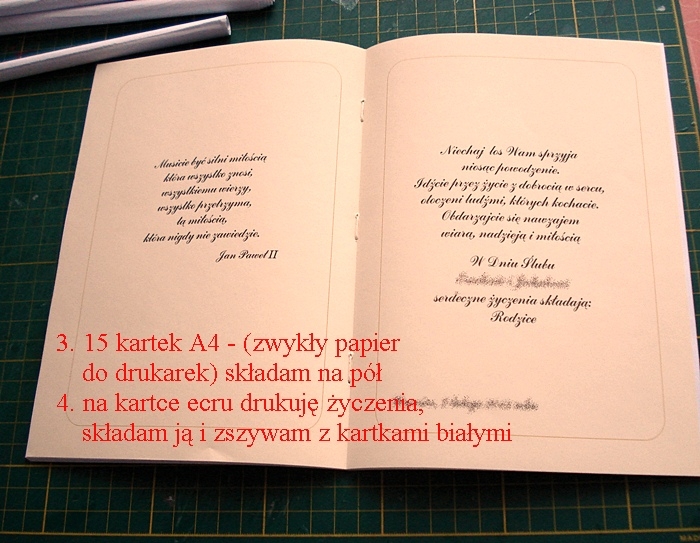 Musicie być silni miłością
która wszystko znosi,
wszystkiemu wierzy,
wszystko przetrzyma,
tą miłością,
która nigdy nie zawiedzie.
Jan Paweł II
Niechaj los Wam sprzyja
niosąc powodzenie.
Idźcie przez życie z dobrocią w sercu,
otoczeni ludźmi, których kochacie.
Obdarzajcie się nawzajem
wiarą, nadzieją i miłością
W Dniu Ślubu
serdeczne życzenia składają:
Rodzice
3. 15 kartek A4 - (zwykły papier
do drukarek) składam na pół
4. na kartce ecru drukuję życzenia,
składam ją i zszywam z kartkami białymi